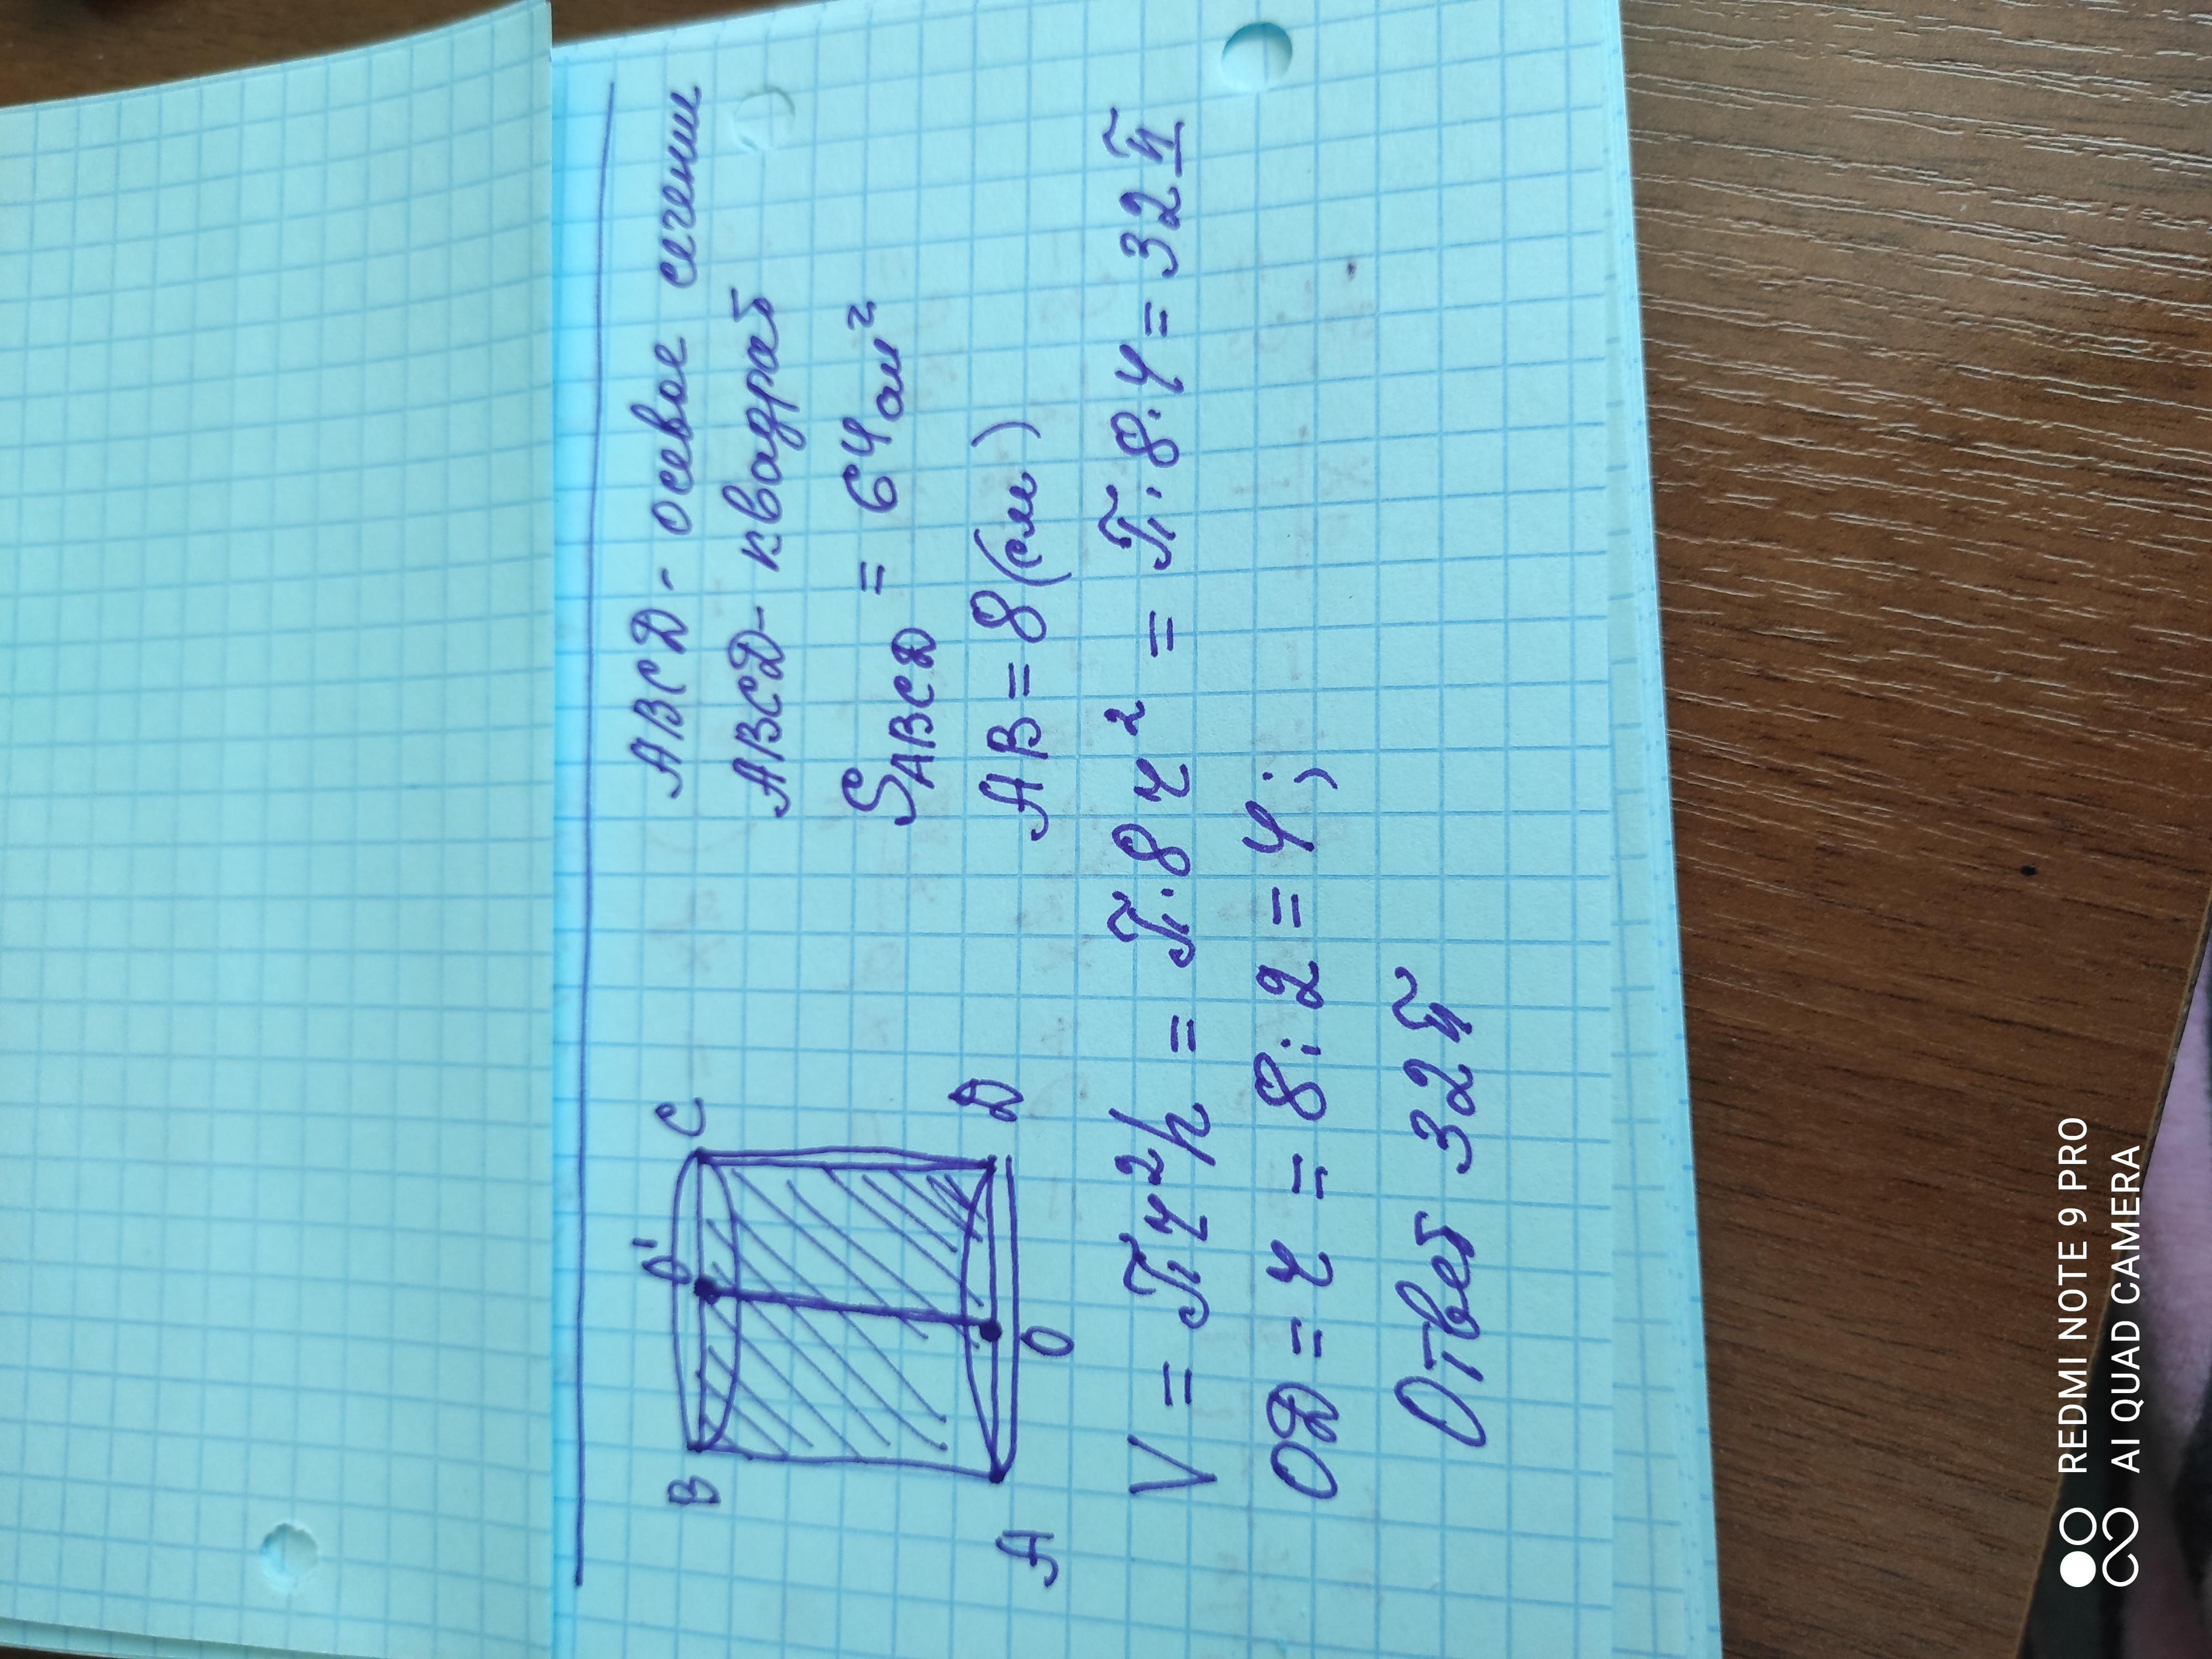 ABCD - осевое сечении
ABCD - квадрат
S ABCD = 64 см²
AB = 8 (см)
B O' C
A O D
V = πr²h = π·8r² = π·8·4 = 32π
OD = r = 8:2 = 4;
Ответ 32π
REDMI NOTE 9 PRO
AI QUAD CAMERA